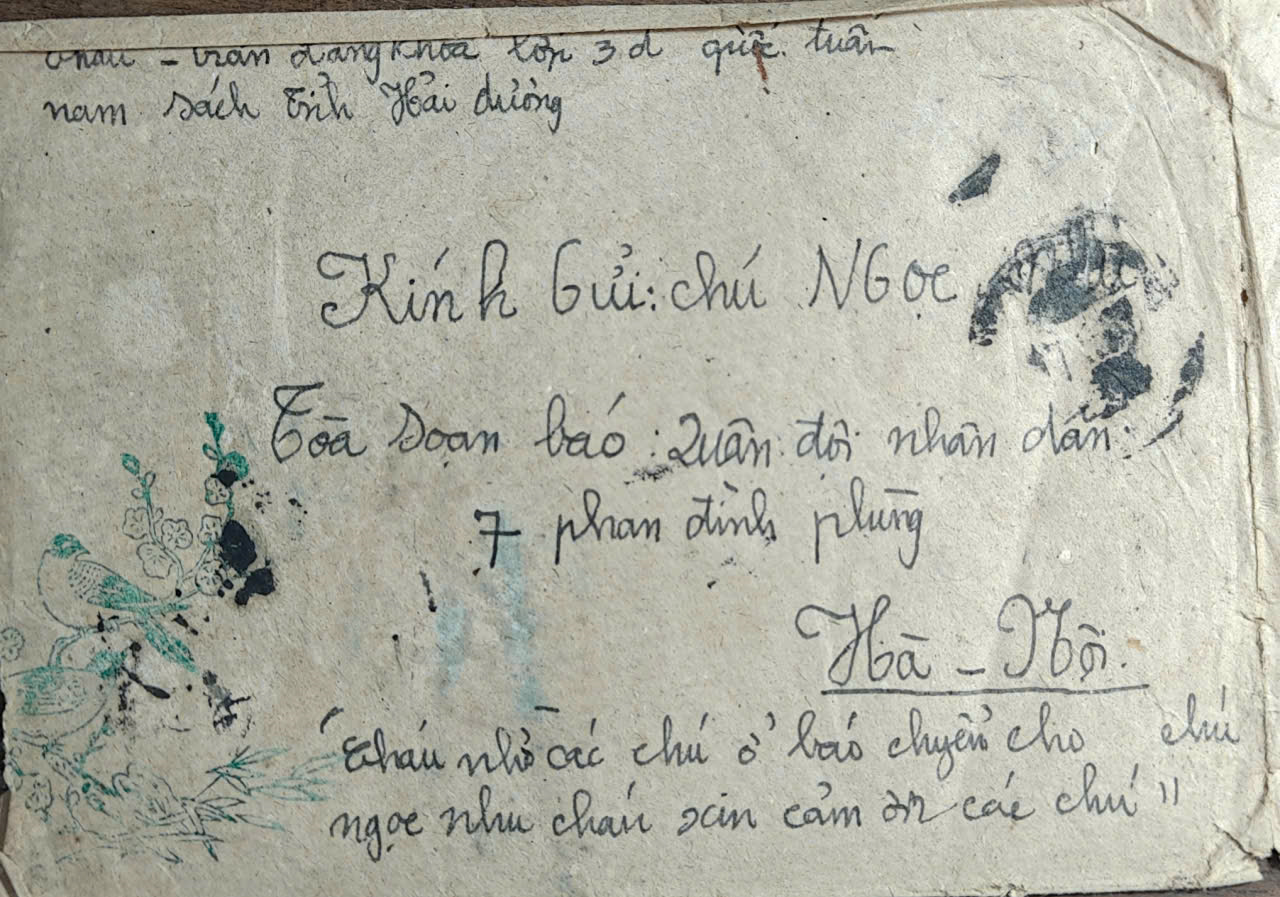 cháu - trần đăng khoa lớp 3d quốc tuấn
nam sách tỉnh Hải dương
Kính Gửi: chú NGọc
Tòa soạn báo: Quân đội nhân dân
7 phan đình phùng
Hà - Nội.
"cháu nhờ các chú ở báo chuyển cho chú
ngọc như cháu xin cảm ơn các chú"